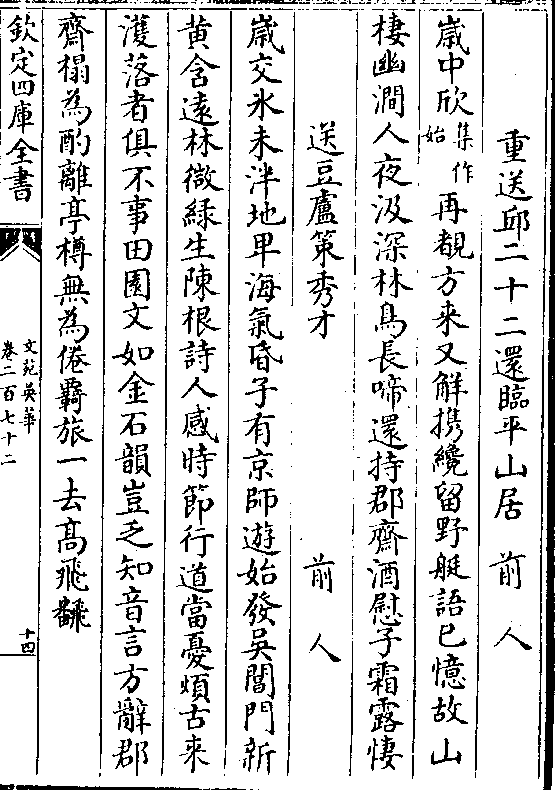 重送邱二十二還臨平山居　前人
歳中欣集作始再覩方来又解擕纜留野艇語已憶故山
棲幽澗人夜汲深林鳥長啼還持郡齊酒慰子霜露悽
送豆盧策秀才　前人
歳交氷未泮地卑海氣昏子有京師遊始發吳閶門新
黄含逺林微緑生陳根詩人感時節行道當憂煩古来
濩落者俱不事田園文如金石韻豈乏知音言方辭郡
齊榻為酌離亭樽無為倦羇旅一去髙飛飜
欽定四庫全書
文苑英華
卷二百七十二
十四